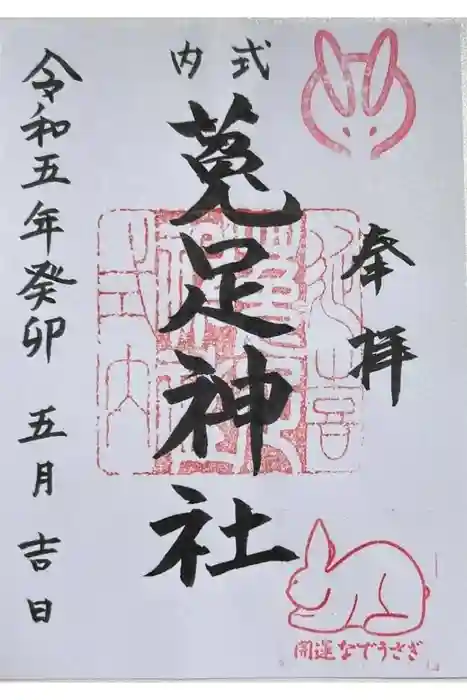 奉拝
式内
莵足神社
令和五年癸卯 五月吉日
延喜
式内
開運なでうさぎ